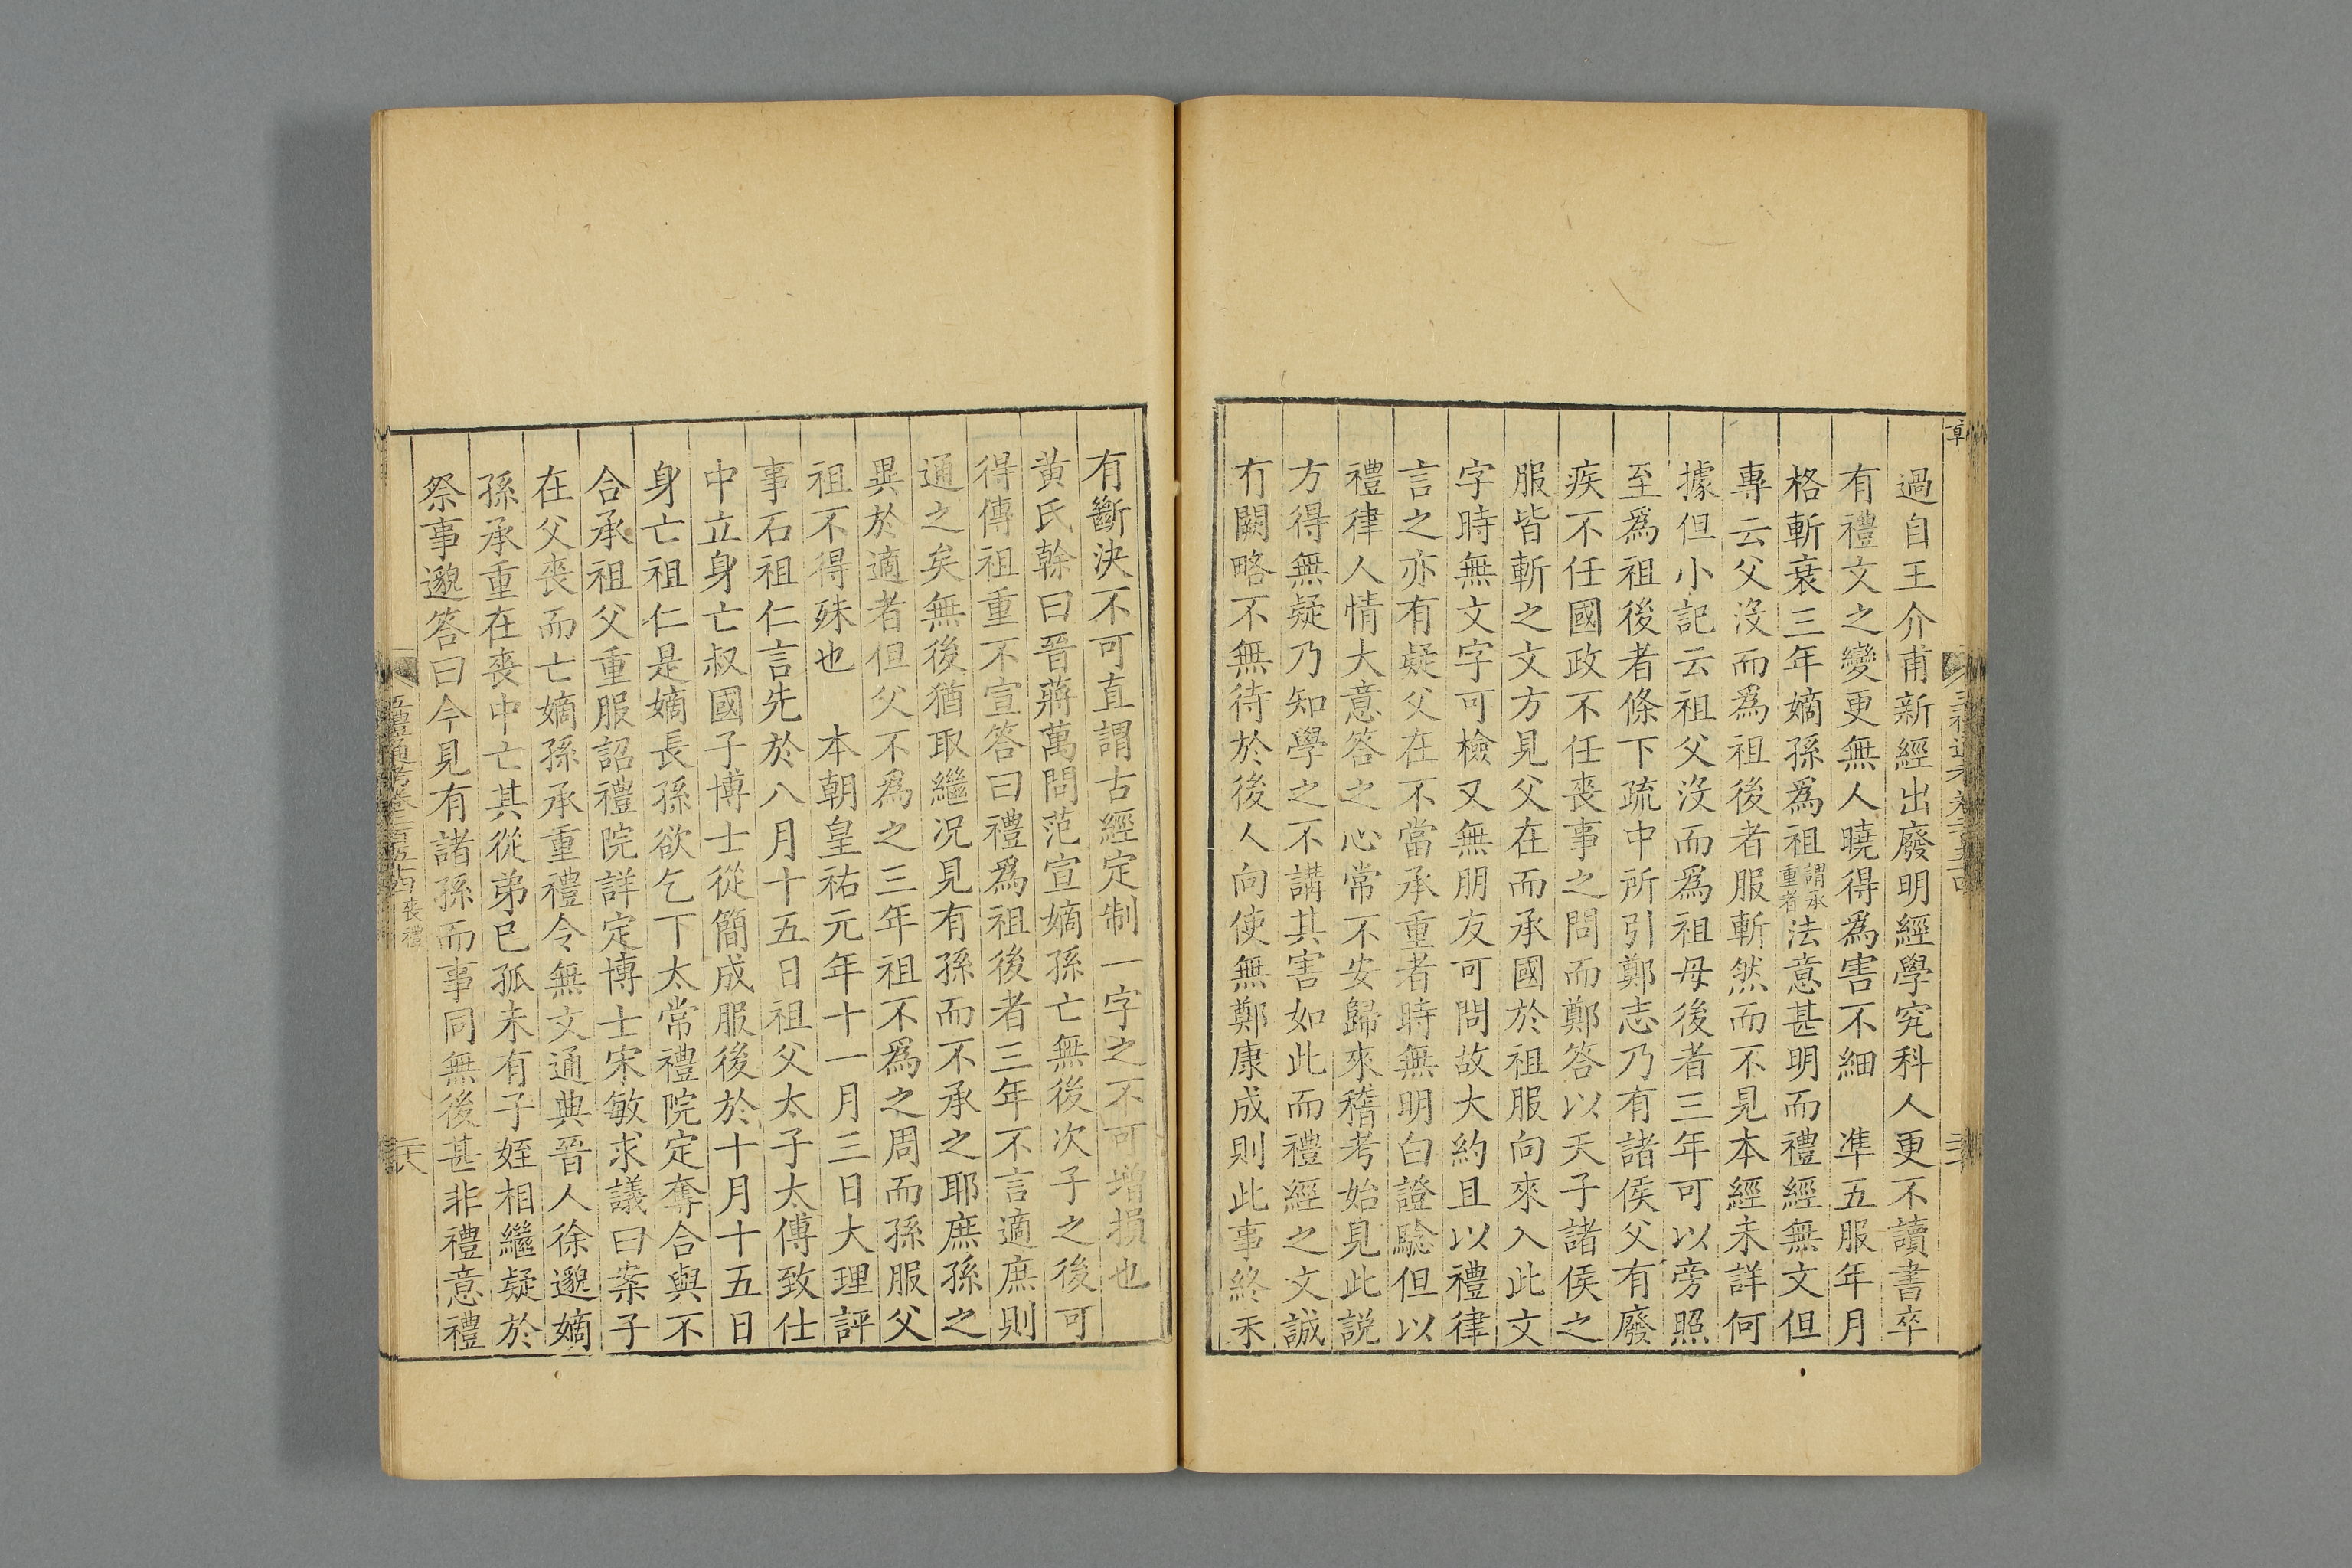 過自王介甫新經出廢明經學究科人更不讀書卒
有禮文之變更無人曉得爲害不細　準五服年月
格斬衰三年嫡孫爲祖謂承重者法意甚明而禮經無文但
專云父沒而爲祖後者服斬然而不見本經未詳何
據但小記云祖父沒而爲祖母後者三年可以旁照
至爲祖後者條下疏中所引鄭志乃有諸侯父有廢
疾不任國政不任喪事之問而鄭答以天子諸侯之
服皆斬之文方見父在而承國於祖服向來入此文
字時無文字可檢又無朋友可問故大約且以禮律
言之亦有疑父在不當承重者時無明白證驗但以
禮律人情大意答之心常不安歸來稽考始見此説
方得無疑乃知學之不講其害如此而禮經之文誠
有闕略不無待於後人向使無鄭康成則此事終未
有斷決不可直謂古經定制一字之不可增損也
黃氏榦曰晉蔣萬問范宣嫡孫亡無後次子之後可
得傳祖重不宣答曰禮爲祖後者三年不言適庶則
通之矣無後猶取繼况見有孫而不承之耶庶孫之
異於適者但父不爲之三年祖不爲之周而孫服父
祖不得殊也　本朝皇祐元年十一月三日大理評
事石祖仁言先於八月十五日祖父太子太傅致仕
中立身亡叔國子博士從簡成服後於十月十五日
身亡祖仁是嫡長孫欲乞下太常禮院定奪合與不
合承祖父重服詔禮院詳定博士宋敏求議曰案子
在父喪而亡嫡孫承重禮令無文通典晉人徐邈嫡
孫承重在喪中亡其從弟已孤未有子姪相繼疑於
祭事邈答曰今見有諸孫而事同無後甚非禮意禮
五禮通考卷二百五十四 喪禮